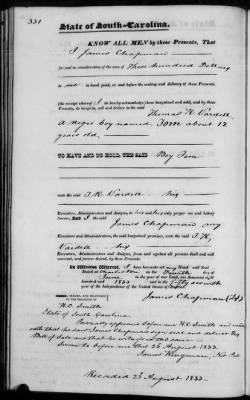 331
State of South-Carolina.
KNOW ALL MEN by these Presents, That
I James Chapman
for and in consideration of the sum of Three hundred Dollars
to me in hand paid, at and before the sealing and delivery of these Presents,
(the receipt whereof I do hereby acknowledge) have bargained and sold, and by these
Presents, do bargain, sell and deliver to the said Thomas H. Cardell
A Negro boy named Tom about 12
years old,
TO HAVE AND TO HOLD, THE SAID Boy Tom
unto the said T. H. Cardell his
Executors, Administrators and Assigns, to his and their only proper use and behoof
forever, And I the said James Chapman my
Executors, Administrators and Assigns, the said bargained premises, unto the said T. H.
Cardell his
Executors, Administrators and Assigns, from and against all persons shall and will
warrant, and forever defend, by these Presents.
In Witness Whereof, I have hereunto set my Hand and Seal
Dated at Charleston on the Fourth day of
June in the year of our Lord, one thousand eight
hundred and 1833 and in the fifty seventh
year of the Independence of the United States of America.
SIGNED, SEALED, AND DELIVERED
IN THE PRESENCE OF
James Chapman (LS)
W. C. Smith
State of South Carolina
Personally appeared before me W. C. Smith and made
oath that he saw James Chapman sign seal and deliver this
Bill of Sale and that he witnessed the same
Sworn to before me this 23 August 1833.
James Kingman, Not. Pub.
Recorded 23 August 1833.